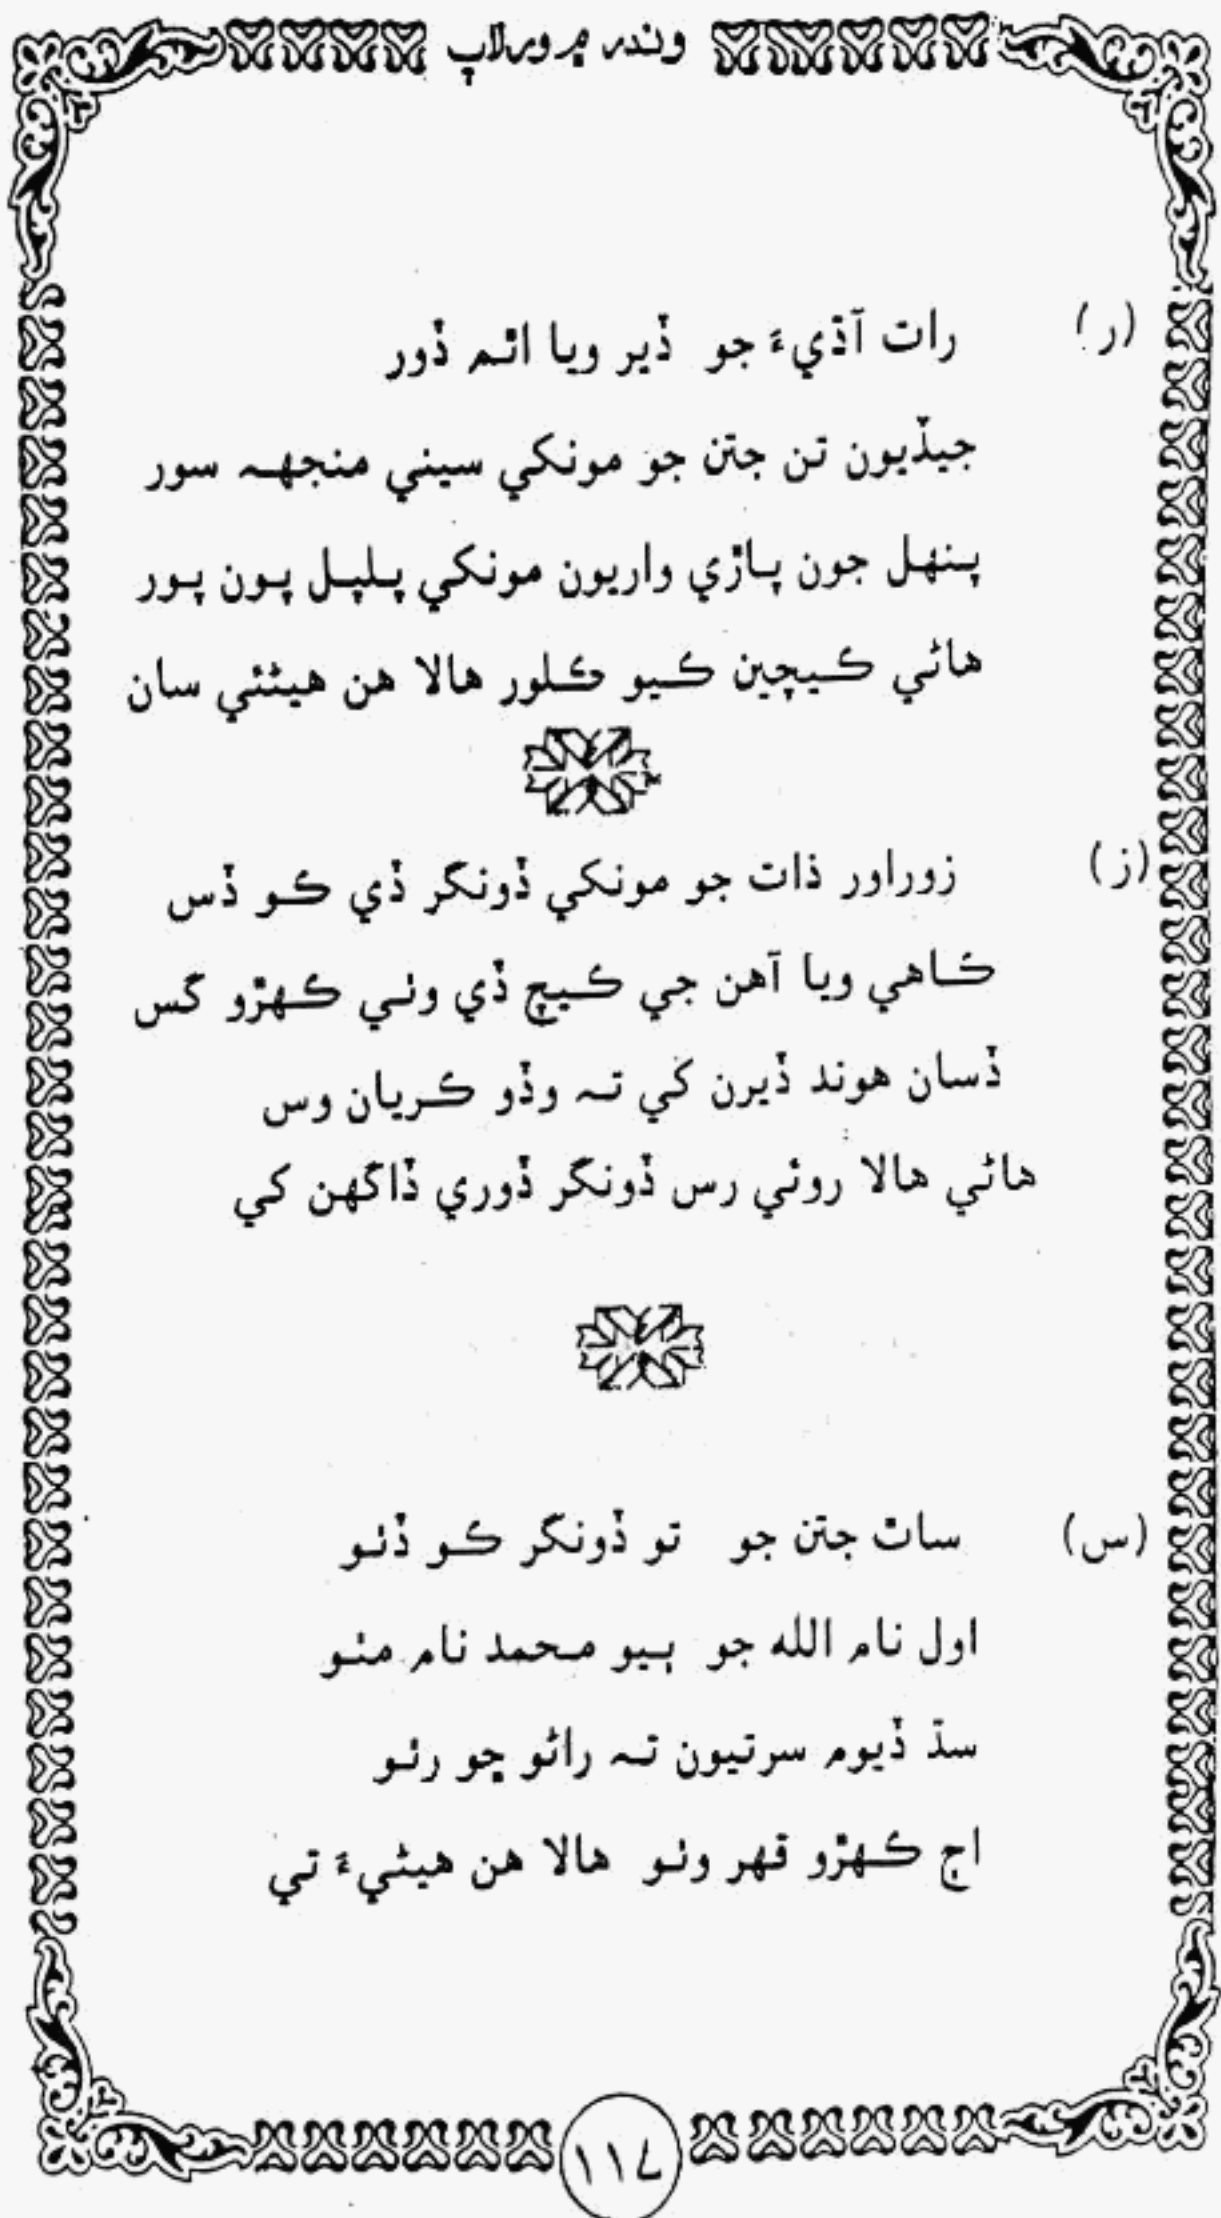 وندر ۾ ورلاپ
(ر) رات آڌيءَ جو ڏير ويا اٿم ڏور
جيڏيون تن جتن جو مونکي سيني منجهه سور
پنهل جون پاڙي واريون مونکي پلپل پون پور
هاڻي ڪيچين ڪيو ڪلور هالا هن هيڻئي سان
(ز) زوراور ذات جو مونکي ڏونگر ڏي ڪو ڏس
ڪاهي ويا آهن جي ڪيچ ڏي وٺي ڪهڙو گس
ڏسان هوند ڏيرن کي ته وڏو ڪريان وس
هاڻي هالا روئي رس ڏونگر ڏوري ڏاگهن کي
(س) ساٿ جتن جو تو ڏونگر ڪو ڏٺو
اول نام الله جو ٻيو محمد نام مٺو
سڏ ڏيوم سرتيون ته راڻو ڇو رٺو
اڄ ڪهڙو قهر وٺو هالا هن هيڻيءَ تي
١١٧